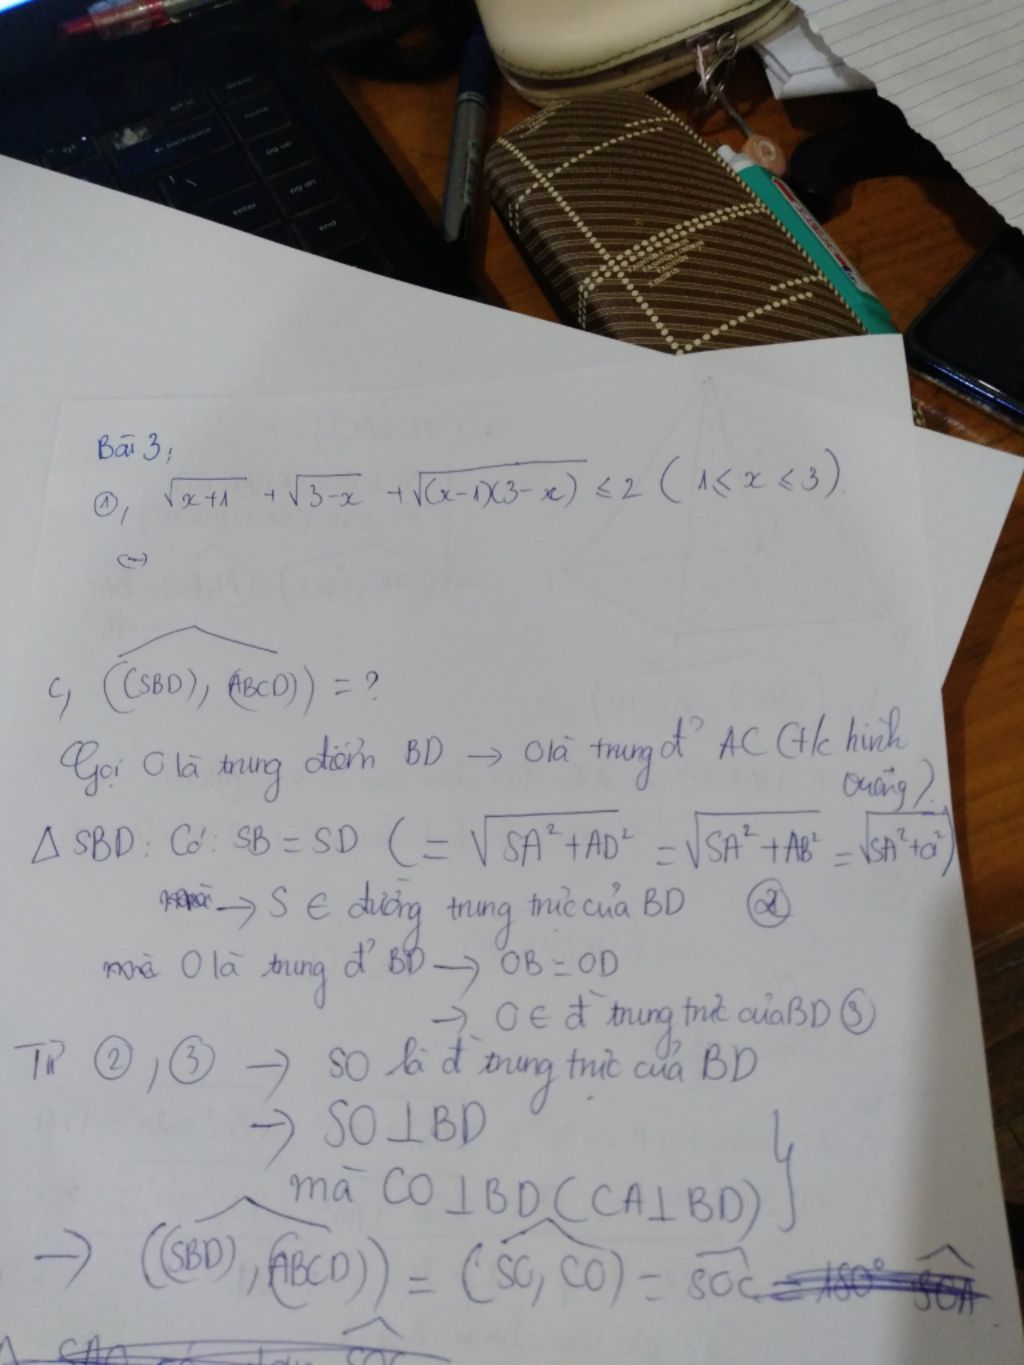 backspace
home
pg up
enter
pg dn
end
Bài 3:
①, √x+1 + √3-x + √(x-1)(3-x) ≤ 2 ( 1 ≤ x ≤ 3 ).
⇔
c, ((SBD), (ABCD)) = ?
Gọi O là trung điểm BD → O là trung đ' AC (t/c hình
vuông).
Δ SBD: Có: SB = SD ( = √SA²+AD² = √SA²+AB² = √SA²+a² )
→ S ∈ đường trung trực của BD ②
mà O là trung đ' BD → OB = OD
→ O ∈ đ` trung trực của BD ③
Từ ②, ③ → SO là đ` trung trực của BD
→ SO ⊥ BD
mà CO ⊥ BD (CA ⊥ BD) }
→ ((SBD), (ABCD)) = (SO, CO) = SOC = 180° SOA